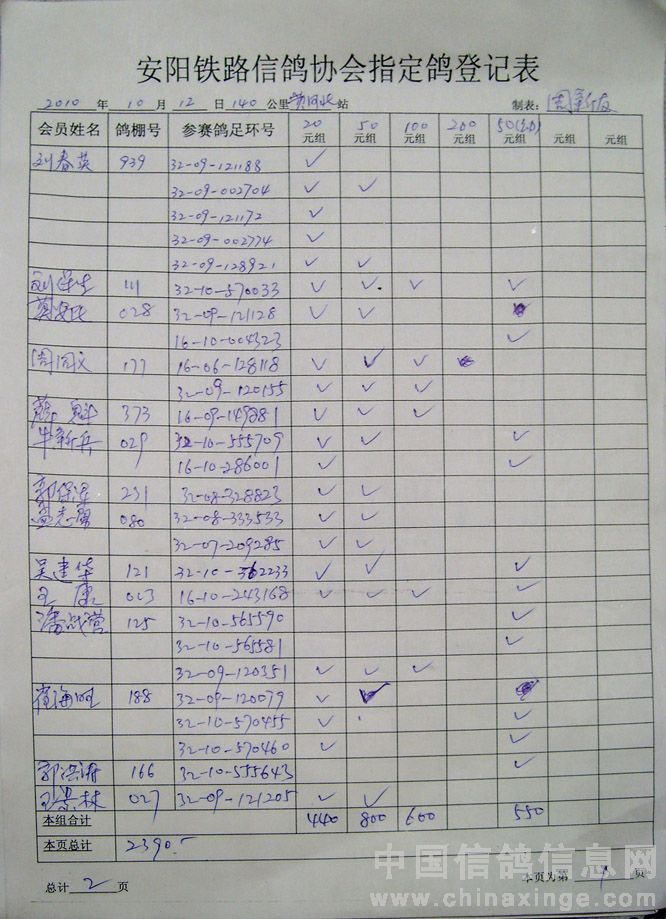 安阳铁路信鸽协会指定鸽登记表
2010 年 10 月 12 日 140 公里 黄河北 站 制表: 周新友
会员姓名 鸽棚号 参赛鸽足环号 20元组 50元组 100元组 200元组 50(2:1)元组 元组 元组
刘春英 939 32-09-121188 ✓
32-09-002704 ✓ ✓
32-09-121172 ✓
32-09-002774 ✓
32-09-128921 ✓ ✓
刘保生 111 32-10-570033 ✓ ✓ ✓ ✓
028 32-09-121128 ✓ ✓
16-10-004323 ✓
周同义 177 16-06-128118 ✓ ✓ ✓
32-09-120155 ✓ ✓ ✓
薛魁 373 16-09-149281 ✓ ✓ ✓
牛新兵 029 32-10-555709 ✓ ✓ ✓
16-10-286001 ✓ ✓
郭保梁 231 32-08-328823 ✓ ✓
孟志勇 080 32-08-333533 ✓ ✓
32-07-209285 ✓ ✓
吴建华 121 32-10-362233 ✓ ✓ ✓
王康 003 16-10-243168 ✓ ✓ ✓ ✓
潘战营 125 32-10-565590 ✓
32-10-565581 ✓
32-09-120351 ✓ ✓ ✓
崔海旺 188 32-09-120079 ✓ ✓
32-10-570455 ✓ ✓
32-10-570460 ✓ ✓
郭洪涛 166 32-10-555643 ✓
王景林 027 32-09-121205 ✓ ✓
本组合计 440 800 600 550
本页总计 2390.-
总计 2 页 本页为第 页
中国信鸽信息网
www.chinaxinge.com